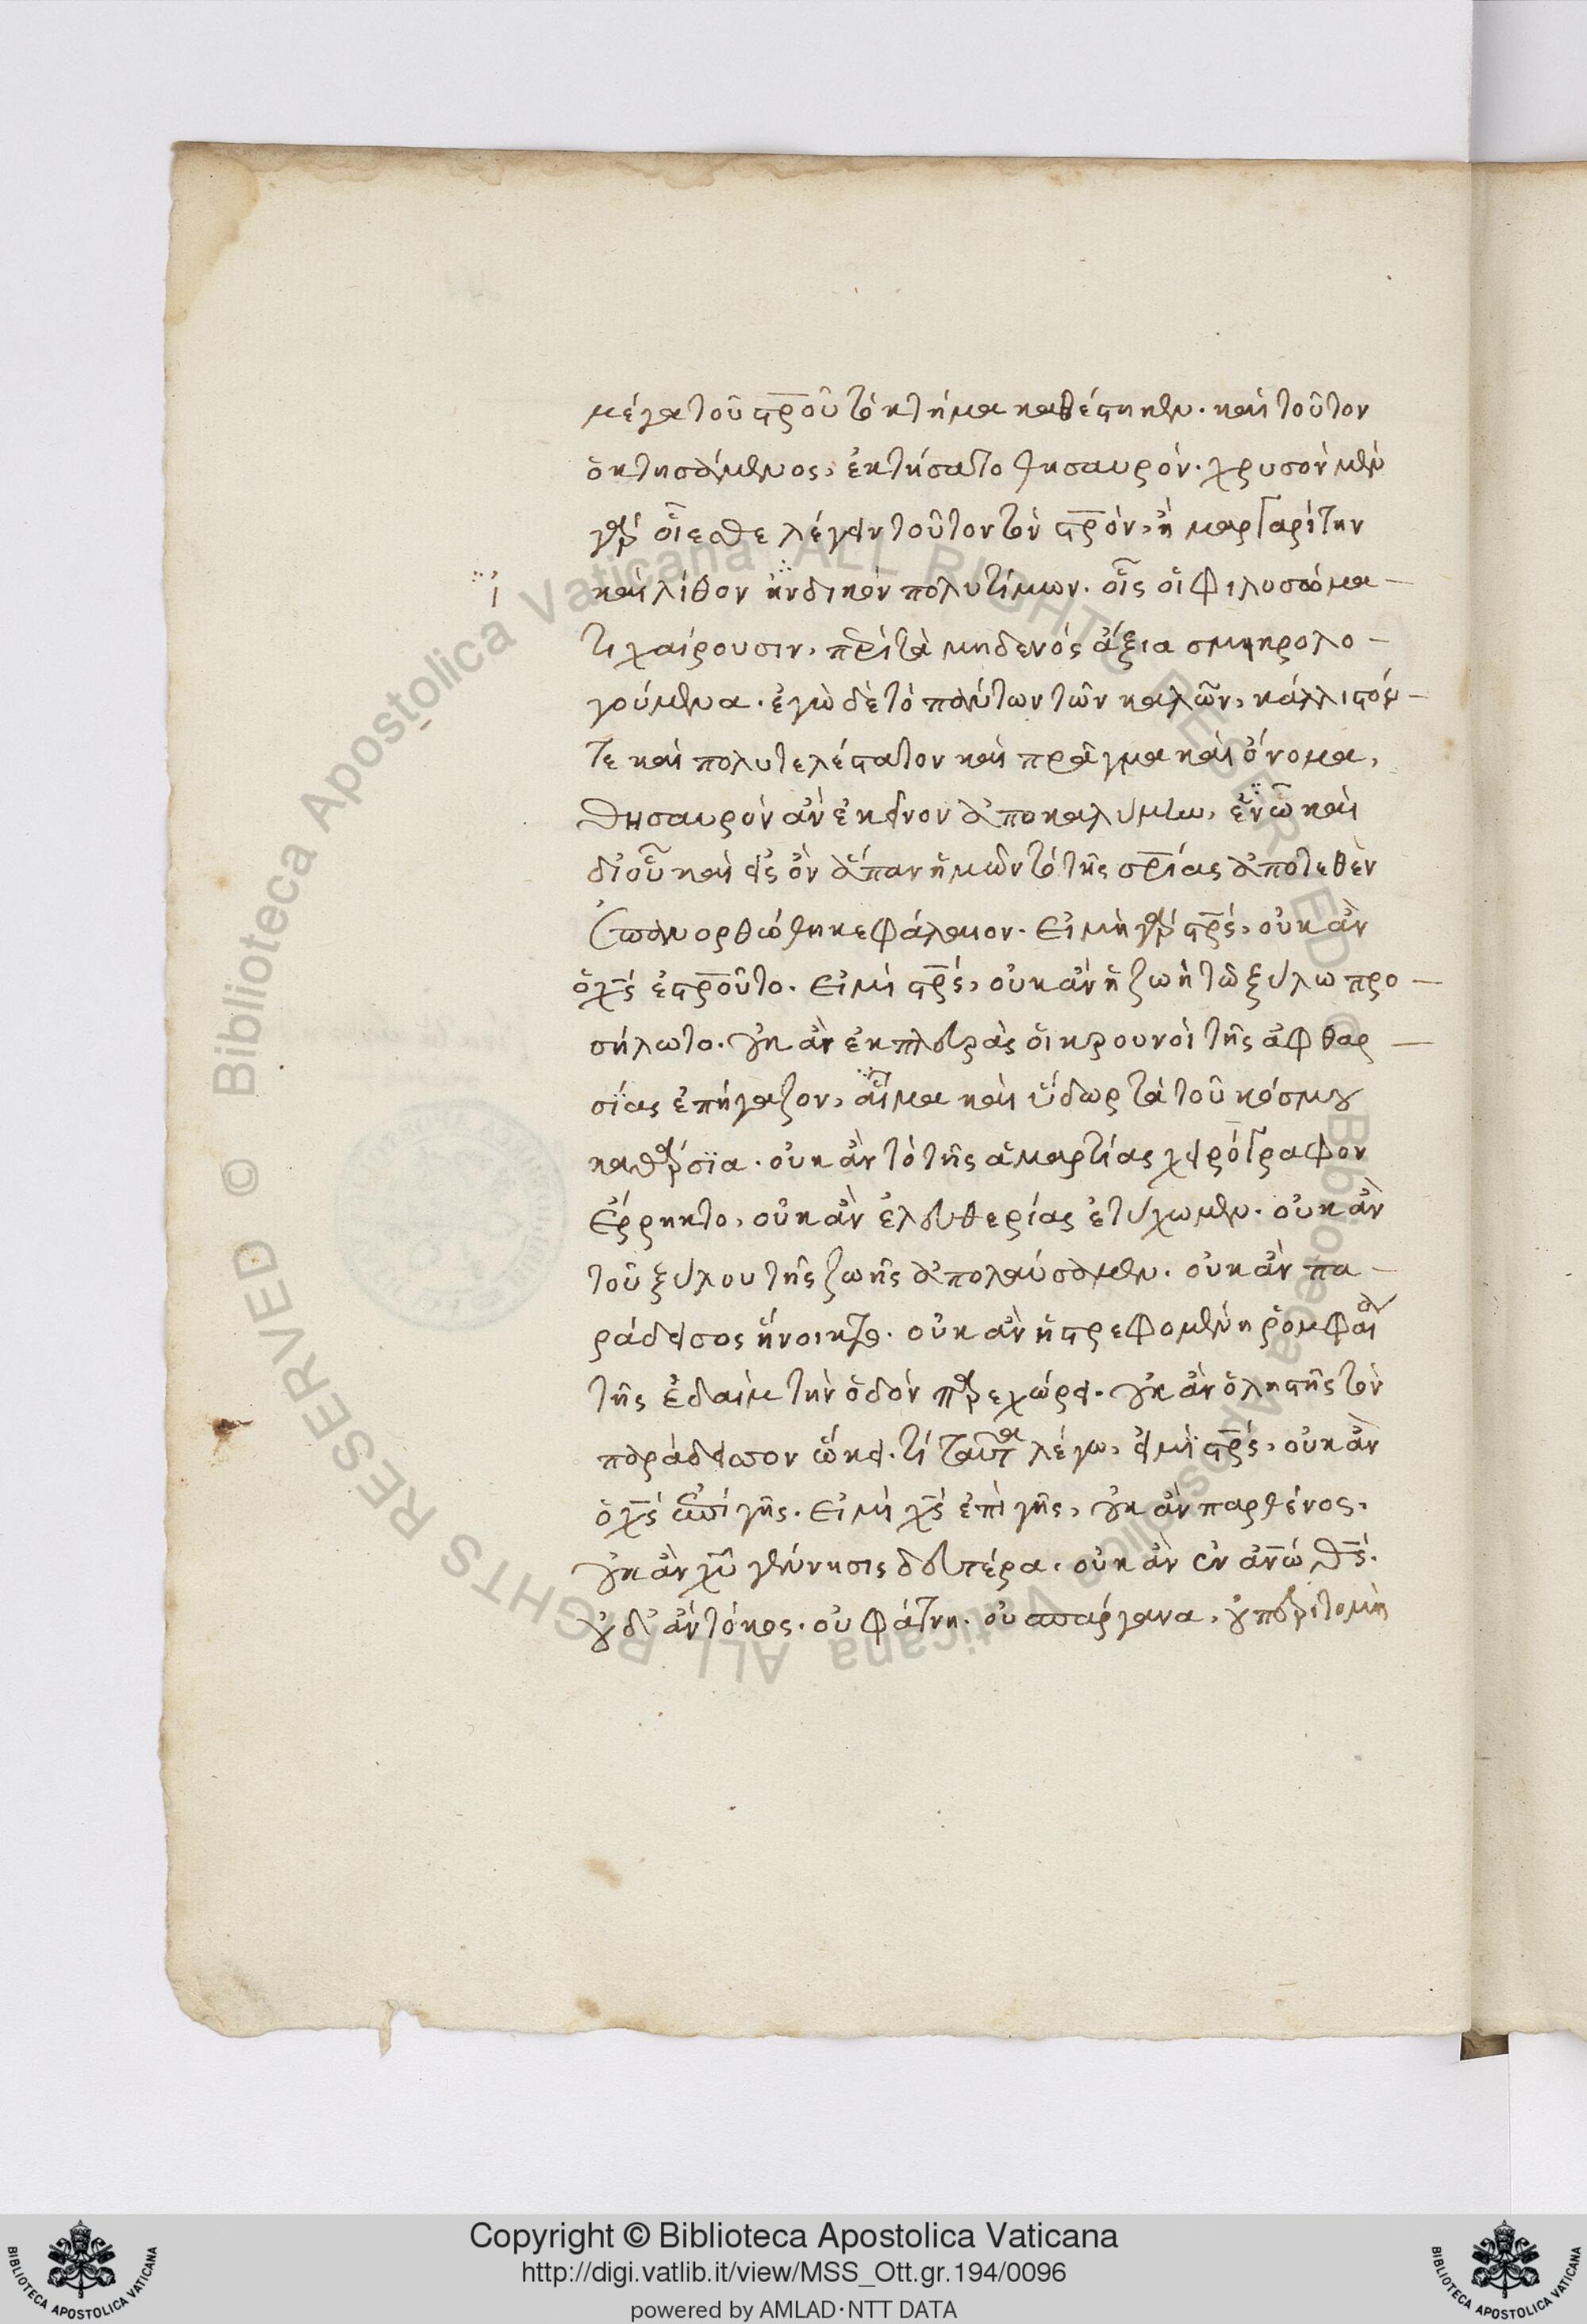 μέγα τοῦ σ̅ρ̅οῦ τὸ κτῆμα καθέστηκεν. καὶ τοῦτον
ὁ κτησάμενος, ἐκτήσατο θησαυρόν. χρυσὸν μὲν
γὰρ οἴεσθε λέγειν τοῦτον τὸν σ̅ρ̅όν, ἢ μαργαρίτην
ἰ
καὶ λίθον ἠνδικὸν πολυτίμων. οἷς οἱ φιλοσώμα-
τι χαίρουσιν, περὶ τὰ μηδενὸς ἄξια σμηκρολο-
γούμενα. ἐγὼ δὲ τὸ πάντων τῶν καλῶν, κάλλιστόν-
τε καὶ πολυτελέστατον καὶ πρᾶγμα καὶ ὄνομα,
θησαυρὸν ἂν ἐκεῖνον ἀποκαλύψω, ἐν ᾧ καὶ
δι' οὗ καὶ εἰς ὃν ἅπαν ἡμῶν τὸ τῆς σ̅ρ̅ίας ἀποτεθὲν
ἐπανορθώθη κεφάλαιον. Εἰ μὴ γὰρ σ̅ρ̅ς, οὐκ ἂν
ὁ χ̅ς ἐσ̅ρ̅οῦτο. Εἰ μὴ σ̅ρ̅ς, οὐκ ἂν ἡ ζωὴ τῷ ξύλω προ-
σήλωτο. οὐκ ἂν ἐκ πλευρὰς οἱ κρουνοὶ τῆς ἀφθαρ-
σίας ἐπήγαζον, αἷμα καὶ ὕδωρ τὰ τοῦ κόσμου
καθάρσϊα. οὐκ ἂν τὸ τῆς ἁμαρτίας χειρόγραφον
Ἐρρηκτο, οὐκ ἂν ἐλευθερίας ἐτύχωμεν. οὐκ ἂν
τοῦ ξύλου τῆς ζωῆς ἀπολαύσαμεν. οὐκ ἂν πα-
ράδεισος ἤνοικτο. οὐκ ἂν ἡ στρεφομένη ῥομφαία
τῆς ἐδαὶμ τὴν ὁδὸν παρεχώρει. οὐκ ἂν ὁ ληστῆς τὸν
παράδεισον ᾤκει. τί ταῦτα λέγω, εἰ μὴ σ̅ρ̅ς, οὐκ ἂν
ὁ χ̅ς ἐπὶ γῆς. Εἰ μὴ χ̅ς ἐπὶ γῆς, οὐκ ἂν παρθένος.
οὐκ ἂν χ̅υ γέννησις δευτέρα. οὐκ ἂν ἐν ἀν̅ω̅ θ̅ς.
οὐδ' ἂν τόκος. οὐ φάτνη. οὐ σπάργανα. οὐ περιτομὴ